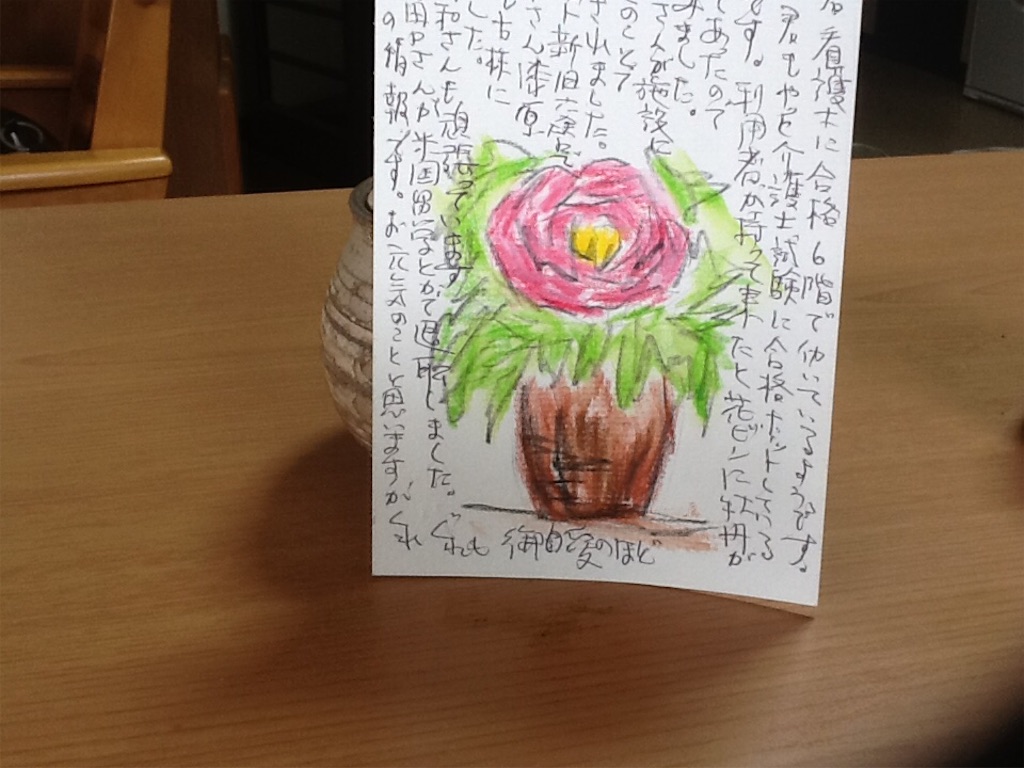 看護士に合格6階で仂いているそうです。
君もやっと介護士試験に合格ホットしている
です。利用者が持って来たと花ビンに牡丹が
てあったので
みました。
さんが施設に
のことで
されました。
ト新旧交
さん漆原
も古株に
した。
和さんも頑張っています
田中さんが米国留学とかで退職しました。
の情報です。お元気のことと思いますが くれ
ぐれも 御自愛のほど